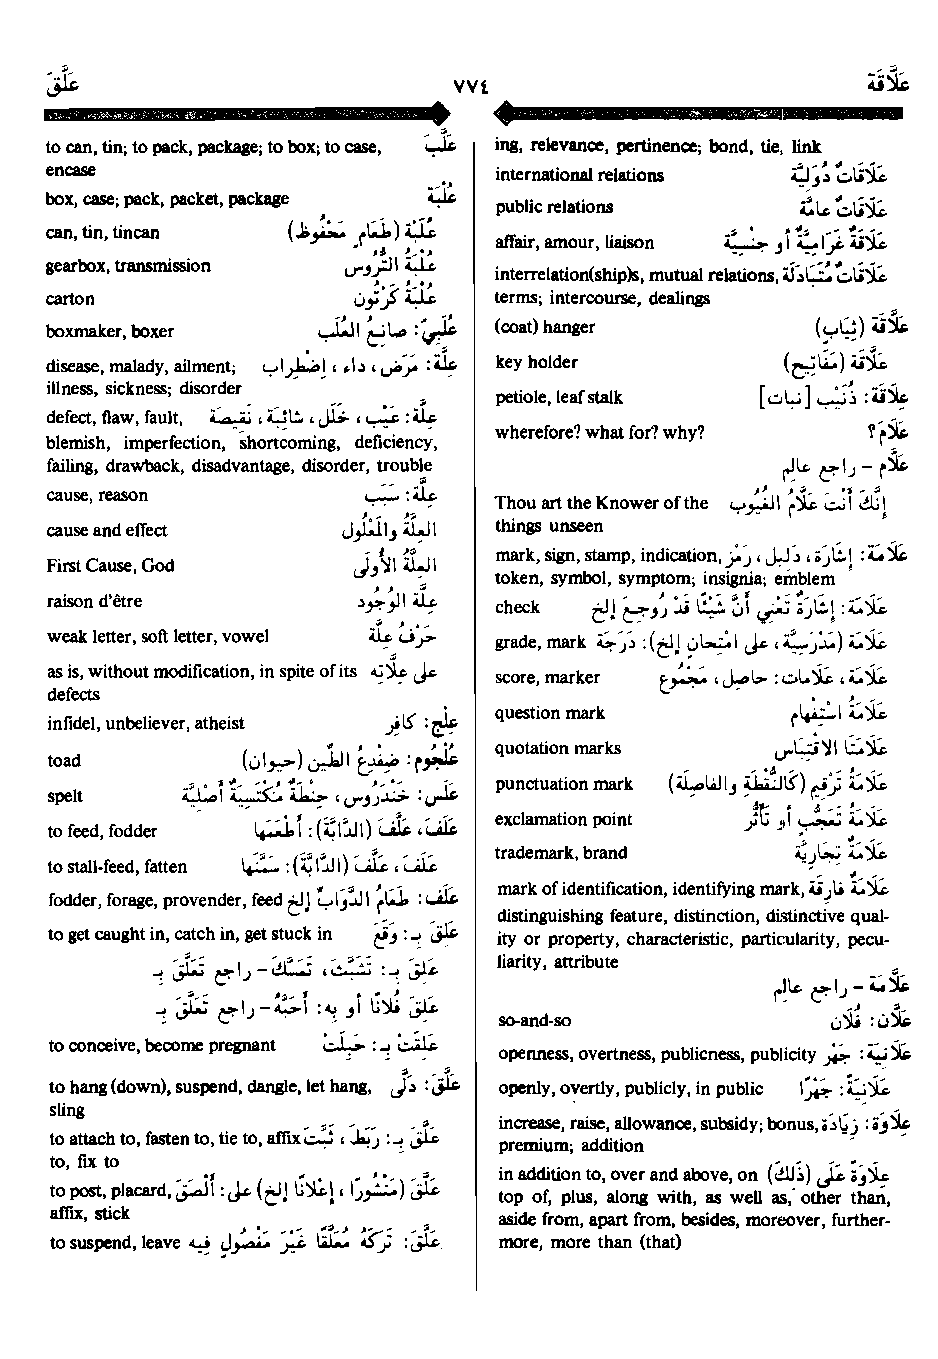 عَلَّاقَة
٧٧٤
عَلَّقَ
ing, relevance, pertinence; bond, tie, link
international relations عَلَاقَاتٌ دُوَلِيَّة
public relations عَلَاقَاتٌ عَامَّة
affair, amour, liaison عَلَاقَةٌ غَرَامِيَّةٌ أو جِنْسِيَّة
interrelation(ship)s, mutual relations, عَلَاقَاتٌ مُتَبَادَلَة
terms; intercourse, dealings
(coat) hanger عَلَّاقَة (ثِيَابٍ)
key holder عَلَّاقَة (مَفَاتِيح)
petiole, leaf stalk عِلَاقَة: ذُنَيْب [نبات]
wherefore? what for? why? عَلَامَ؟
عَلَّام - راجع عالِم
Thou art the Knower of the إِنَّكَ أَنْتَ عَلَّامُ الغُيُوب
things unseen
mark, sign, stamp, indication, عَلَامَة: إشَارَة، دَلِيل، رَمْز
token, symbol, symptom; insignia; emblem
check عَلَامَة: إشَارَةٌ تَعْنِي أَنَّ شَيْئًا قَدْ رُوجِعَ إلخ
grade, mark عَلَامَة (مَدْرَسِيَّة، على امْتِحانٍ إلخ): دَرَجَة
score, marker عَلَامَة، عَلَامَات: حاصِل، مَجْمُوع
question mark عَلَامَةُ اسْتِفْهَام
quotation marks عَلَامَتَا الاقْتِبَاس
punctuation mark عَلَامَةُ تَرْقِيم (كَالنُّقْطَةِ والفَاصِلَة)
exclamation point عَلَامَةُ تَعَجُّبٍ أو تَأَثُّر
trademark, brand عَلَامَةٌ تِجَارِيَّة
mark of identification, identifying mark, عَلَامَةٌ فَارِقَة
distinguishing feature, distinction, distinctive qual-
ity or property, characteristic, particularity, pecu-
liarity, attribute
عَلَّامَة - راجع عالِم
so-and-so عَلَّان: فُلَان
openness, overtness, publicness, publicity عَلَانِيَة: جَهْر
openly, overtly, publicly, in public عَلَانِيَةً: جَهْرًا
increase, raise, allowance, subsidy; bonus, عِلَاوَة: زِيَادَة
premium; addition
in addition to, over and above, on عِلَاوَةً عَلَى (ذَلِكَ)
top of, plus, along with, as well as, other than,
aside from, apart from, besides, moreover, further-
more, more than (that)
to can, tin; to pack, package; to box; to case, عَلَّبَ
encase
box, case; pack, packet, package عُلْبَة
can, tin, tincan عُلْبَة (طَعَامٍ مَحْفُوظ)
gearbox, transmission عُلْبَةُ التُّرُوس
carton عُلْبَةُ كَرْتُون
boxmaker, boxer عُلَبِيّ: صَانِعُ العُلَب
disease, malady, ailment; عِلَّة: مَرَض، داء، إضْطِراب
illness, sickness; disorder
defect, flaw, fault, عِلَّة: عَيْب، خَلَل، شائِبَة، نَقِيصَة
blemish, imperfection, shortcoming, deficiency,
failing, drawback, disadvantage, disorder, trouble
cause, reason عِلَّة: سَبَب
cause and effect العِلَّةُ والمَعْلُول
First Cause, God العِلَّةُ الأُولَى
raison d'être عِلَّةُ الوُجُود
weak letter, soft letter, vowel حَرْفُ عِلَّة
as is, without modification, in spite of its على عِلَّاتِهِ
defects
infidel, unbeliever, atheist عِلْج: كافِر
toad عُلْجُوم: ضِفْدِعُ الطِّين (حيوان)
spelt عَلَس: خَنْدَرُوس، حِنْطَةٌ مُكْتَسِيَةٌ أَصْلِيَّة
to feed, fodder عَلَفَ، عَلَّفَ (الدَّابَّةَ): أَطْعَمَهَا
to stall-feed, fatten عَلَفَ، عَلَّفَ (الدَّابَّةَ): سَمَّنَهَا
fodder, forage, provender, feed عَلَف: طَعَامُ الدَّوَابِّ إلخ
to get caught in, catch in, get stuck in عَلِقَ بـ: وَقَعَ
عَلِقَ بـ: تَشَبَّثَ، تَمَسَّكَ - راجع تَعَلَّقَ بـ
عَلِقَ فُلَانًا أو بِهِ: أَحَبَّهُ - راجع تَعَلَّقَ بـ
to conceive, become pregnant عَلِقَتْ بـ: حَبِلَتْ
to hang (down), suspend, dangle, let hang, عَلَّقَ: دَلَّى
sling
to attach to, fasten to, tie to, affix عَلَّقَ بـ: رَبَطَ، ثَبَّتَ
to, fix to
to post, placard, عَلَّقَ (مَنْشُورًا، إعْلَانًا إلخ) على: أَلْصَقَ
affix, stick
to suspend, leave عَلَّقَ: تَرَكَهُ مُعَلَّقًا غَيْرَ مَفْصُولٍ فِيه